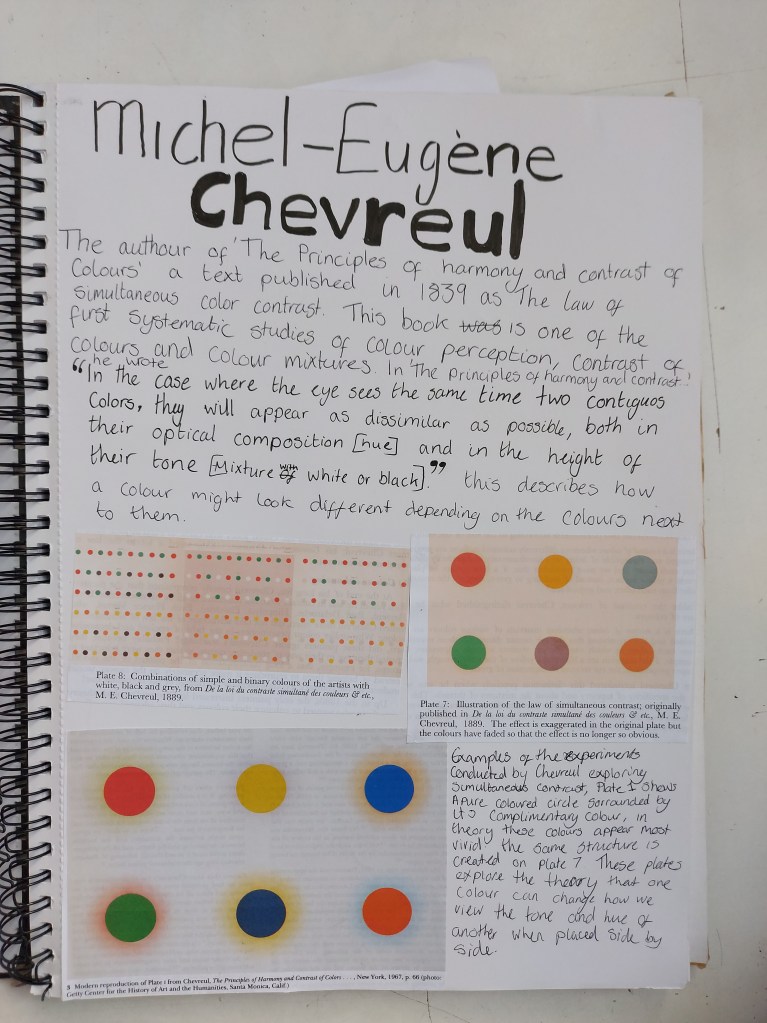 Michel-Eugène
Chevreul
The authour of 'The Principles of harmony and contrast of
Colours' a text published in 1839 as The law of
simultaneous color contrast. This book was is one of the
first systematic studies of colour perception, contrast of
colours and colour mixtures. In 'The Principles of harmony and contrast.'
he wrote
"In the case where the eye sees the same time two contiguos
Colors, they will appear as dissimilar as possible, both in
their optical composition [hue] and in the height of
their tone [Mixture with of white or black]." this describes how
a colour might look different depending on the colours next
to them.
Plate 8: Combinations of simple and binary colours of the artists with
white, black and grey, from De la loi du contraste simultané des couleurs & etc.,
M. E. Chevreul, 1889.
Plate 7: Illustration of the law of simultaneous contrast; originally
published in De la loi du contraste simultané des couleurs & etc., M. E.
Chevreul, 1889. The effect is exaggerated in the original plate but
the colours have faded so that the effect is no longer so obvious.
Examples of the experiments
Conducted by Chevreul exploring
Simultaneous contrast, Plate 1 shows
A pure coloured circle sorrounded by
its complimentary colour, in
theory these colours appear most
vivid the same structure is
created on plate 7. These plates
explore the theory that one
Colour can change how we
view the tone and hue of
another when placed side by
side.
Modern reproduction of Plate 1 from Chevreul, The Principles of Harmony and Contrast of Colors . . . , New York, 1967, p. 66 (photo:
Getty Center for the History of Art and the Humanities, Santa Monica, Calif.)